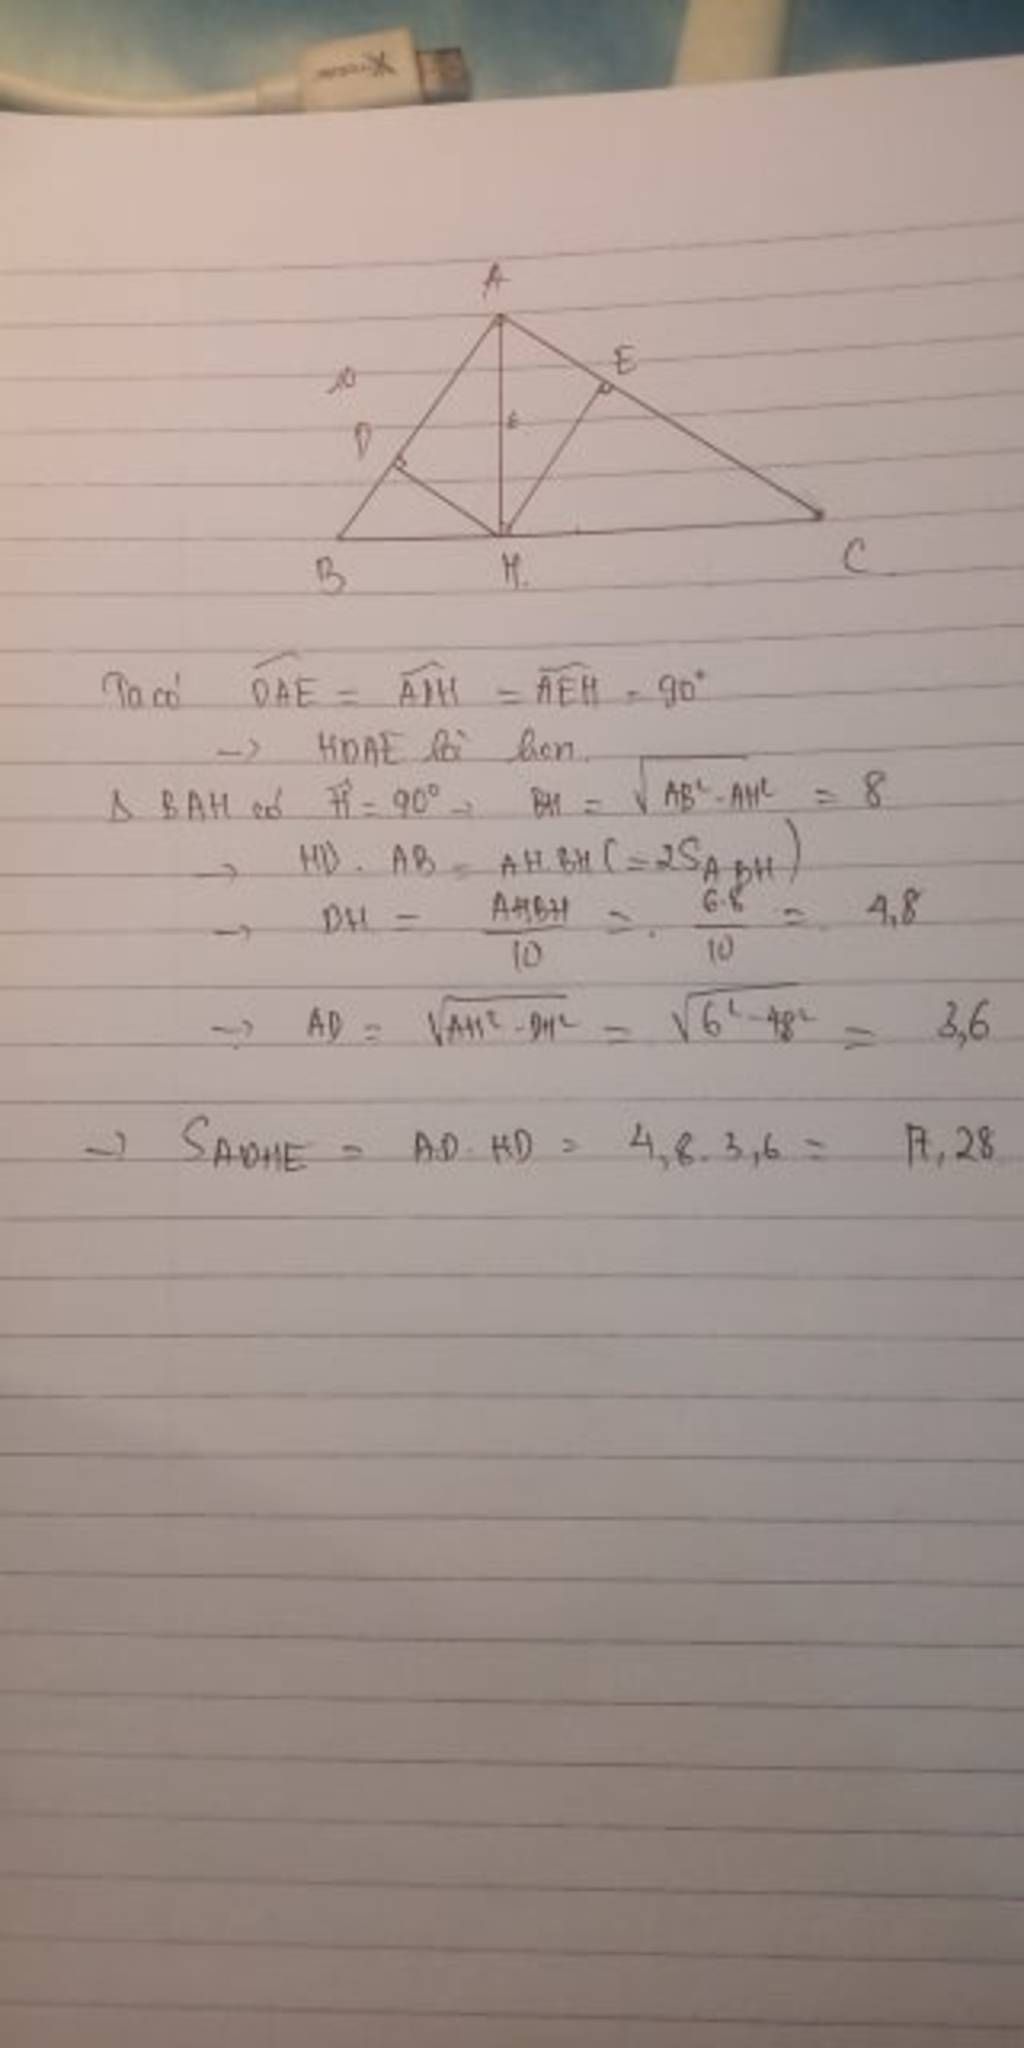 A
E
10
D
6
B
H
C
Ta có DAE = ADH = AEH = 90°
→ HDAE là hcn.
Δ BAH có H = 90° → BH = √AB² - AH² = 8
→ HD . AB = AH.BH (= 2S ABH)
→ DH = AH.BH/10 = 6.8/10 = 4,8
→ AD = √AH² - DH² = √6² - 4,8² = 3,6
→ SADHE = AD.HD = 4,8.3,6 = 17,28